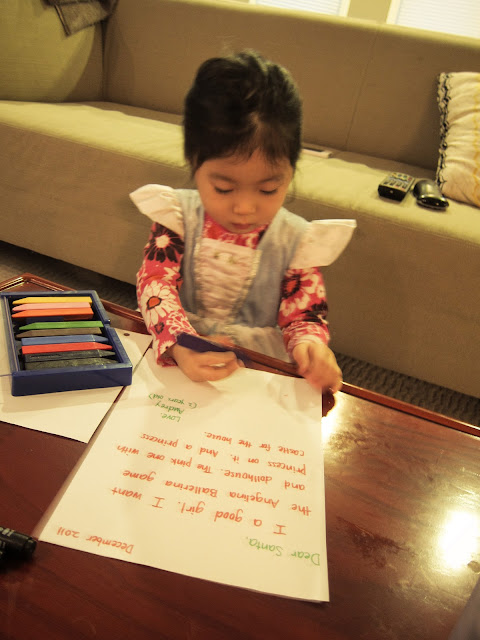 December 2011
Dear Santa,
I a good girl. I want
the Angelina Ballerina game
and dollhouse. The pink one with
princess on it. And a princess
castle for the house.
Love,
Audrey
(2 years old)